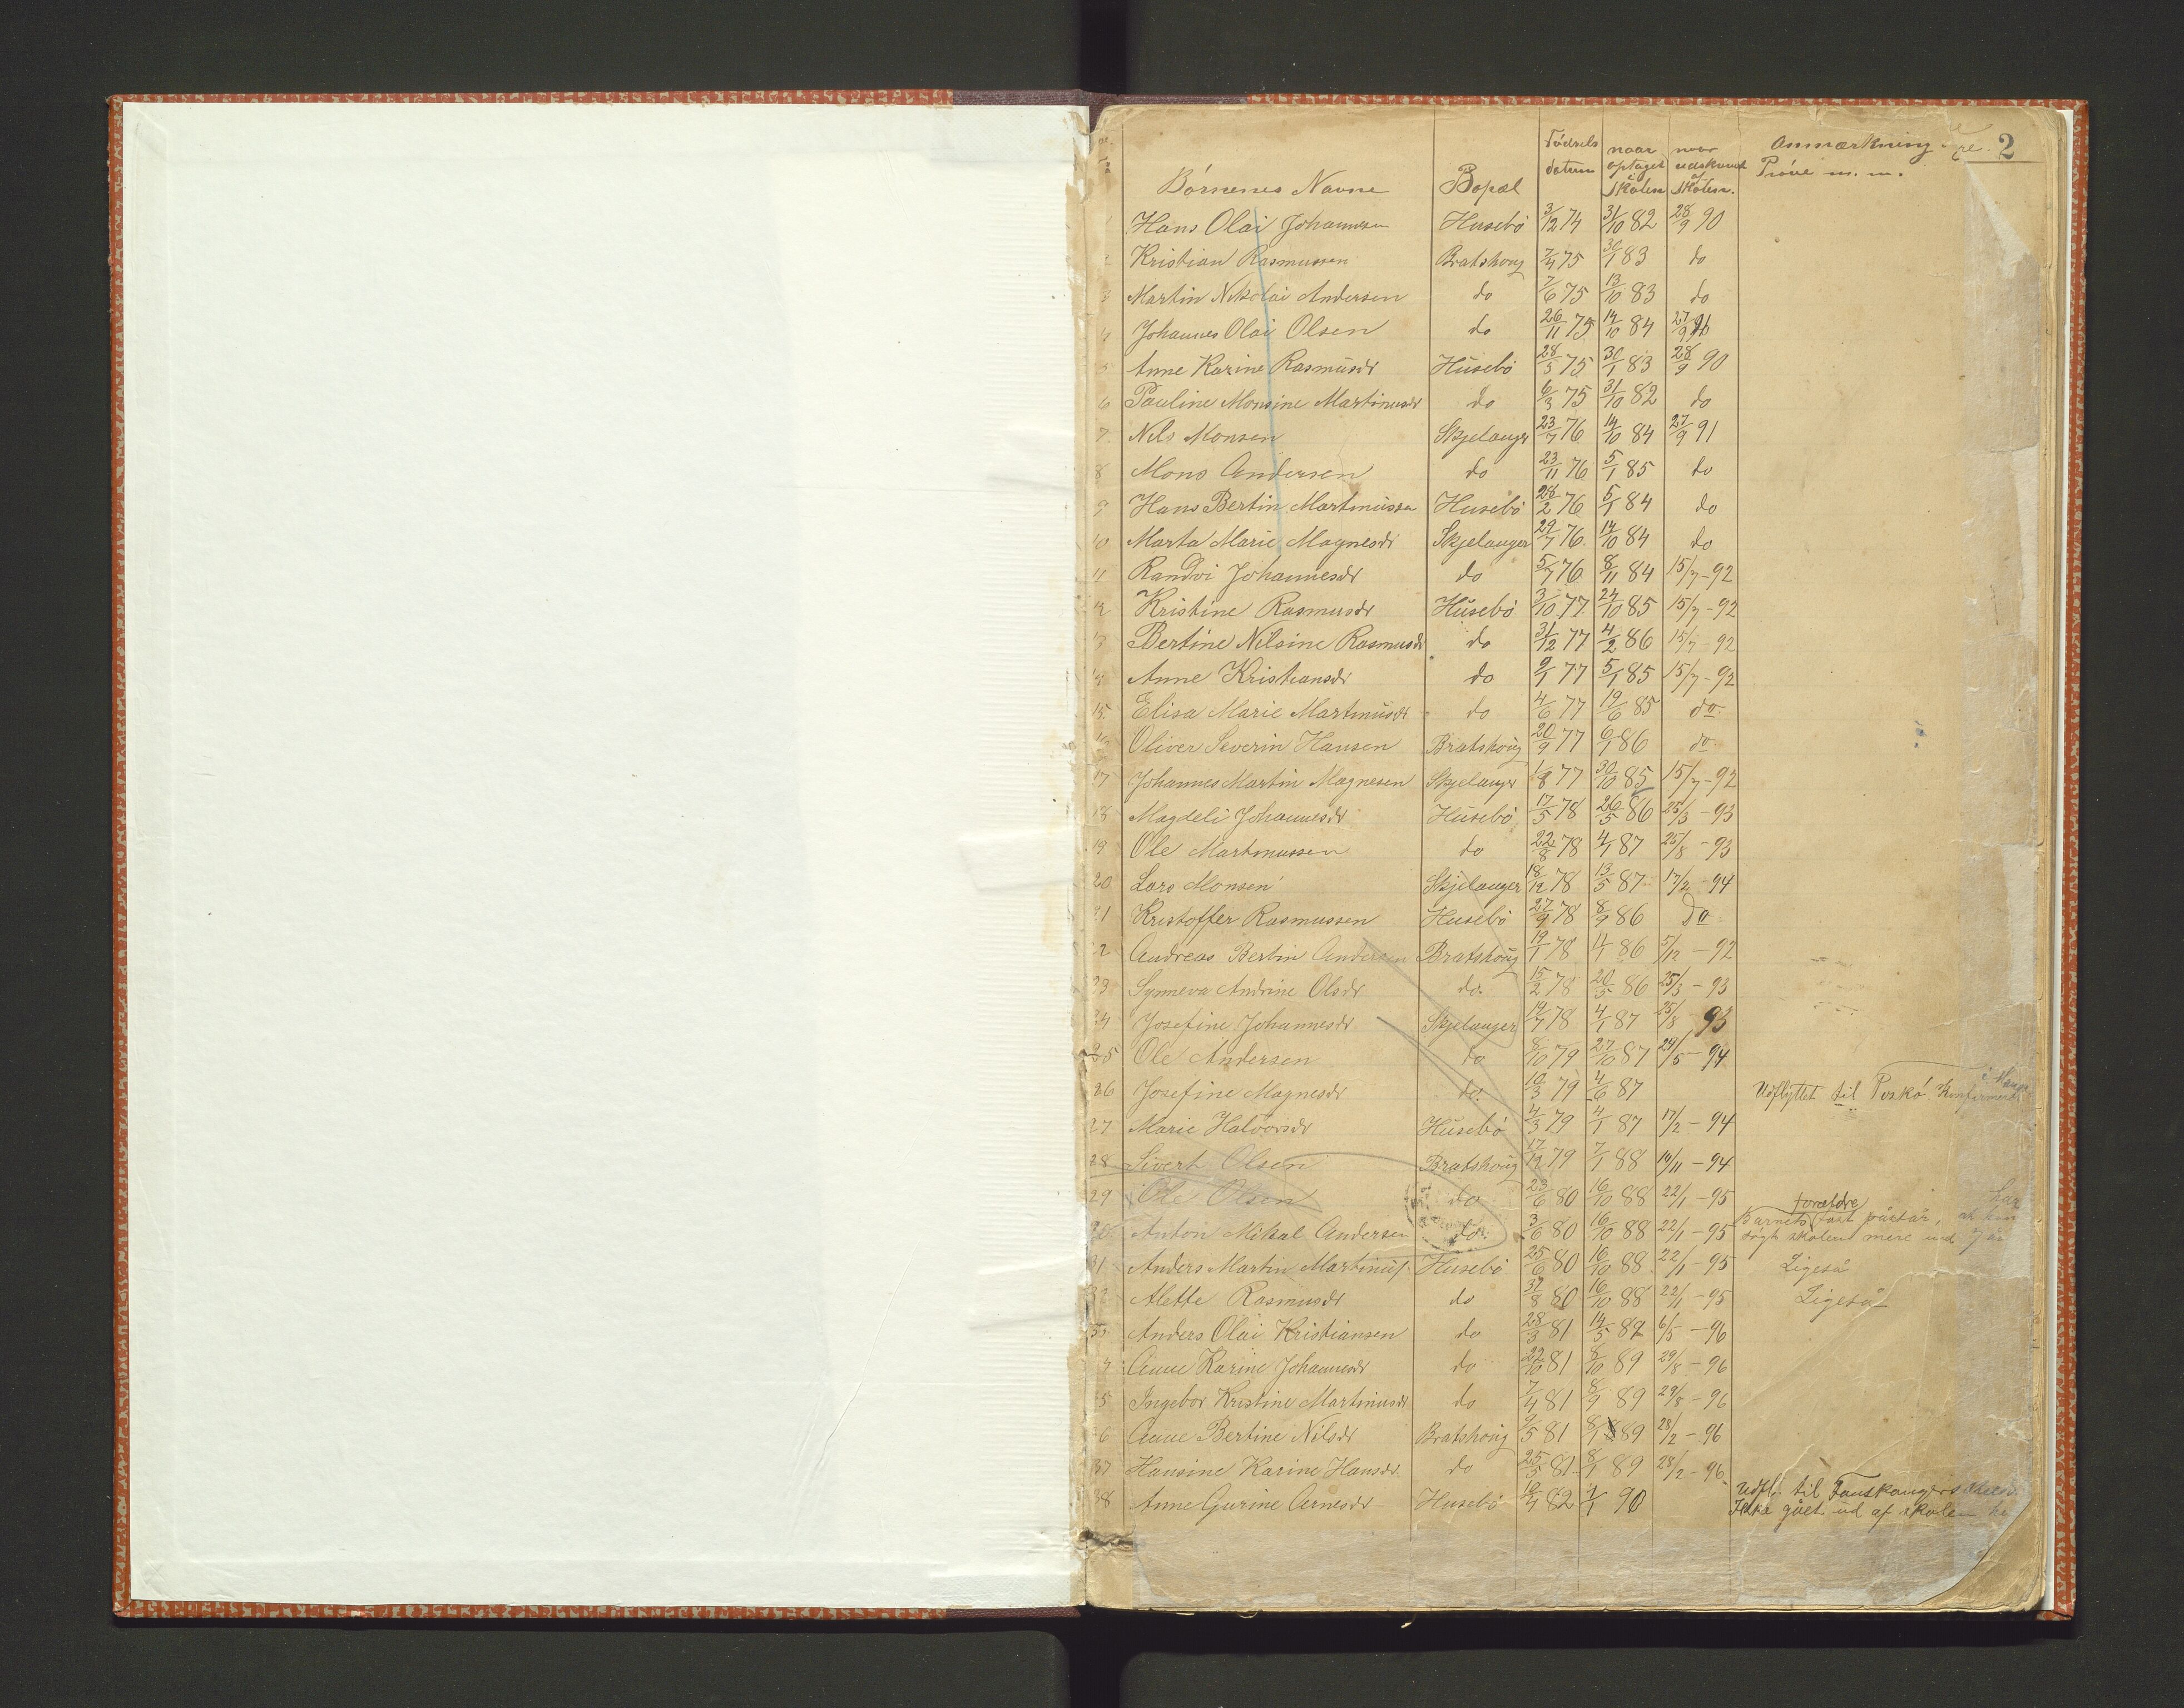 2
Børnenes Navne Bopæl Fødsels datum naar optaget i skolen naar udskrevet af skolen. Anmærkning Prøve m. m.
1 Hans Olai Johannesen Husebø 3/12 74 31/10 82 28/9 90
2 Kristian Rasmussen Bratshoug 7/4 75 30/1 83 do
3 Martin Nikolai Andersen do 7/6 75 13/10 83 do
4 Johannes Olai Olsen do 26/11 75 14/10 84 27/9
5 Anne Karine Rasmusdr Husebø 28/3 75 30/1 83 28/9 90
6 Pauline Monsine Martinusdr do 6/3 75 31/10 82 do
7 Nils Monsen Skjelanger 23/7 76 14/10 84 27/9 91
8 Mons Andersen do 23/11 76 5/1 85 do
9 Hans Bertin Martinussen Husebø 28/2 76 5/1 84 do
10 Marta Marie Magnesdr Skjelanger 29/7 76 14/10 84 do
11 Randvi Johannesdr do 5/7 76 8/11 84 15/7-92
12 Kristine Rasmusdr Husebø 3/10 77 24/10 85 15/7-92
13 Bertine Nilsine Rasmusdr do 31/12 77 4/2 86 15/7-92
14 Anne Kristiansdr do 9/1 77 5/1 85 15/7-92
15. Elisa Marie Martinusdr do 4/6 77 19/6 85 do.
16 Oliver Severin Hansen Bratshoug 20/9 77 6/1 86 do
17 Johannes Martin Magnesen Skjelanger 1/8 77 30/10 85 15/7-92
18 Magdeli Johannesdr Husebø 17/5 78 26/5 86 25/3-93
19 Ole Martinussen do 22/8 78 4/1 87 25/8-93
20 Lars Monsen Skjelanger 18/12 78 13/5 87 17/2-94
21 Kristoffer Rasmussen Husebø 27/9 78 8/9 86 do
22 Andreas Bertin Andersen Bratshoug 19/1 78 86 5/12-92
23 Synneva Andrine Olsdr do. 15/2 78 20/5 86 25/3-93
24 Josefine Johannesdr Skjelanger 19/7 78 4/1 87 25/8-93
25 Ole Andersen do 8/10 79 27/10 87 24/5-94
26 Josefine Magnesdr do. 10/3 79 4/6 87 Udflyttet til
27 Marie Halvorsdr Husebø 4/3 79 4/1 87 17/2-94
28 Sivert Olsen Bratshoug 17/12 79 7/1 88 19/11-94
29 Ole Olsen do 23/6 80 16/10 88 22/1-95
30 Anton Mikal Andersen do. 3/6 80 16/10 88 22/1-95 Barnets forældre påstår, at har søgt skolen mere end 7 år
31 Anders Martin Martinus. Husebø 25/6 80 16/10 88 22/1-95 Ligeså
32 Alette Rasmusdr do 31/8 80 16/10 88 22/1-95 Ligeså
33 Anders Olai Kristiansen do 28/3 81 14/5 89 6/5-96
34 Anne Karine Johannesdr do 22/10 81 8/10 89 29/8-96
35 Ingebor Kristine Martinusdr do 7/4 81 8/9 89 29/8-96
36 Anne Bertine Nilsdr Bratshoug 9/5 81 8/1 89 28/2-96
37 Hansine Karine Hansdr. do 25/5 81 8/1 89 28/2-96
38 Anne Gurine Arnesdr Husebø 12/4 82 7/1 90 Udfl. til
Ikke gået ud af skolen